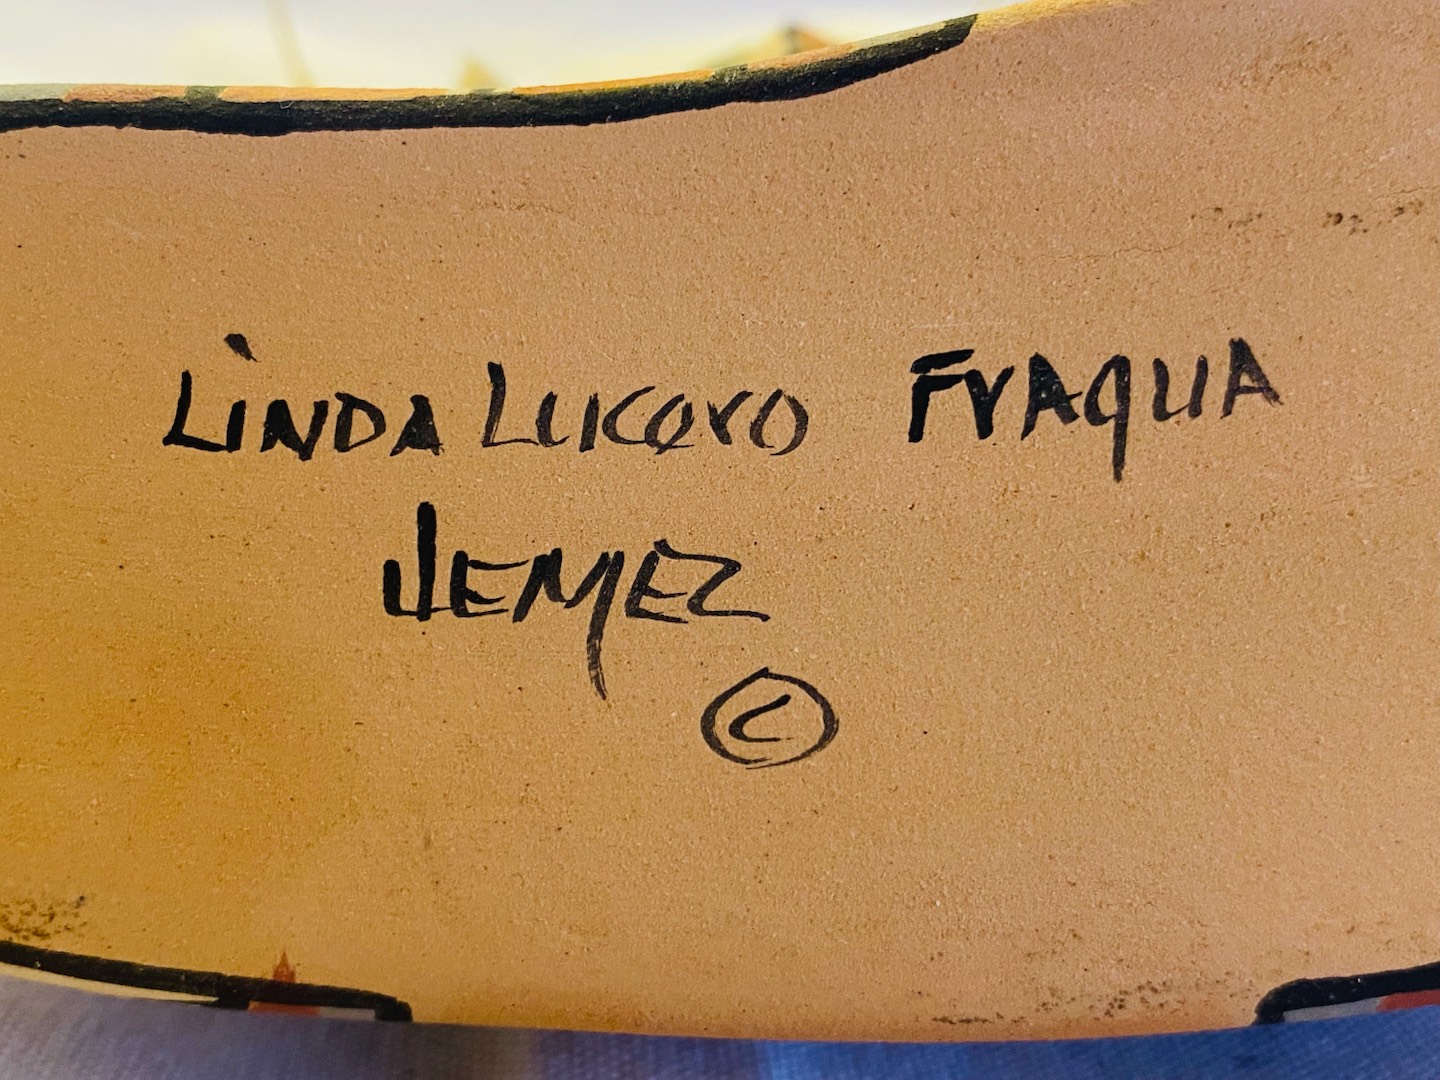 LINDA LUCERO FRAGUA
JEMEZ
©